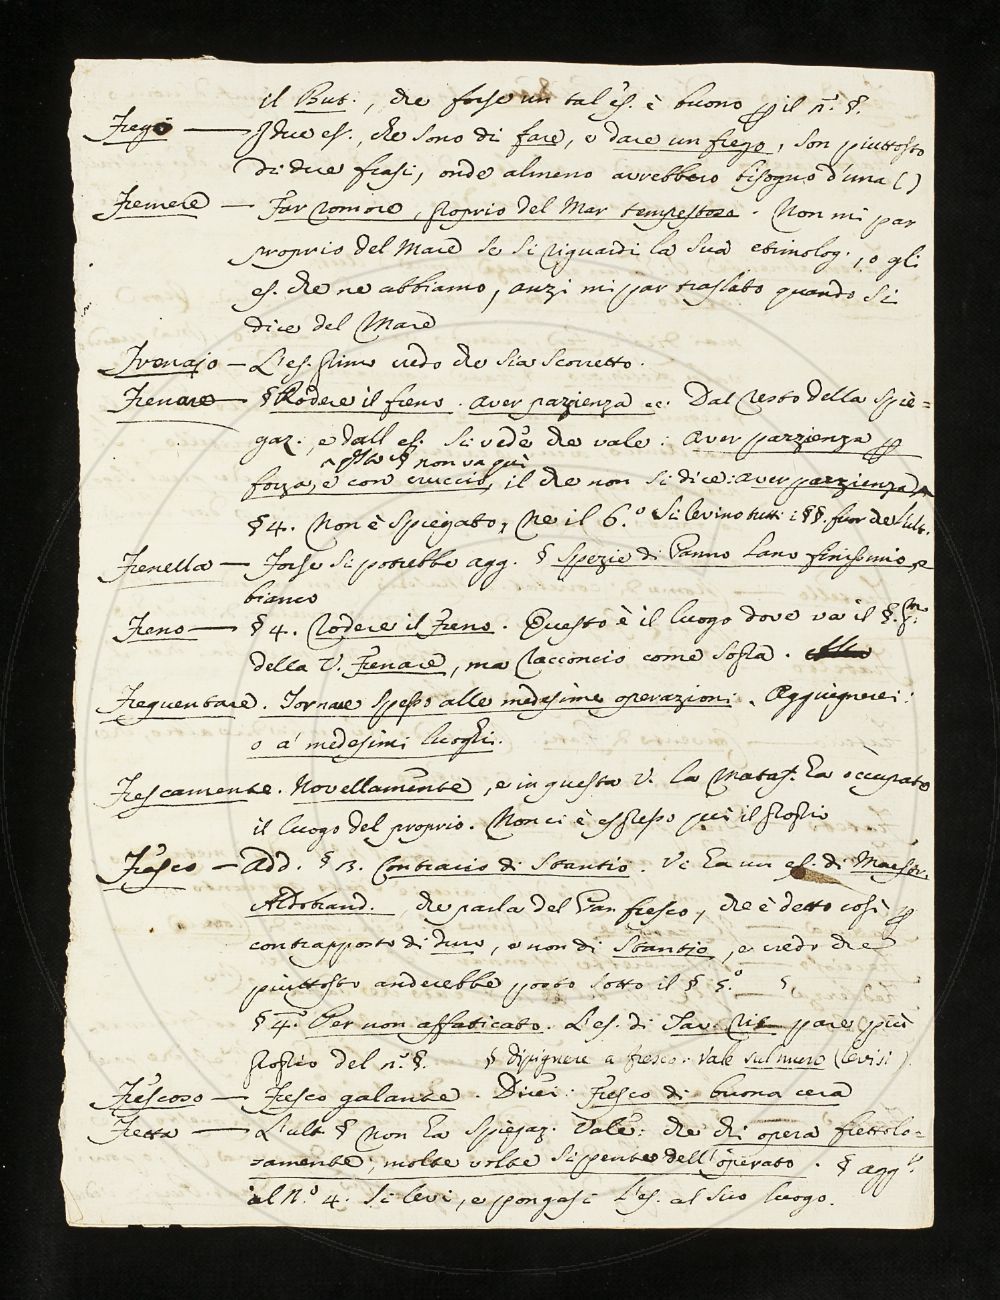 il But., che forse un tal es. è buono p il n.° §.
Frego — I due es., che sono di fare, o dare un frego, son piuttosto
di due frasi, onde almeno avrebbero bisogno d'una ()
Fremere — Far romore, proprio del Mar tempestoso. Non mi par
proprio del Mare se si riguardi la sua etimolog., o gli
es. che ne abbiamo, anzi mi par traslato quando si
dice del Mare
Frenajo — L'es. credo che sia scorretto.
Frenare — § Rodere il freno. aver pazienza ec. Dal resto della spie=
gaz. e dall es. si vede che vale: aver pazzienza p
^ qsto § non va quì
forza, e con cruccio, il che non si dice: aver pazzienza
§ 4. Non è spiegato, ne il 6.° Si levino tutti i §§. fuor che l'ult.
Frenella — Forse si potrebbe agg. § Spezie di Panno Lano finissimo, e
bianco
Freno — § 4. Rodere il Freno. Questo è il luogo dove va il §.
della V. Frenare, ma racconcio come sopra.
Frequentare. Tornare spesso alle medesime operazioni. Aggiugnerei:
o a' medesimi luoghi.
Frescamente. Novellamente, e in questa V. la Metaf. ha occupato
il luogo del proprio. Non ci è espresso quì il proprio
Fresco — Add. § 3. Contrario di Stantio. Vi ha un es. di Maestr.
Aldobrand. che parla del Pan fresco, che è detto così p
contrapposto di duro, e non di Stantio, e credo che
piuttosto anderebbe posto sotto il § 5.°
§ 4. Per non affaticato. L'es. di Tav. Rit. pare più
proprio del n.° §. § dipignere a fresco. Vale sul muro (levisi).
Frescoso — Fresco galante. Direi: Fresco di buona cera
Fretta — L'ult. § non ha spiegaz. Vale: che chi opera frettolo=
samente, molte volte si pente dell'operato. § agg.°
al N.° 4. si levi, e pongasi l'es. al suo luogo.